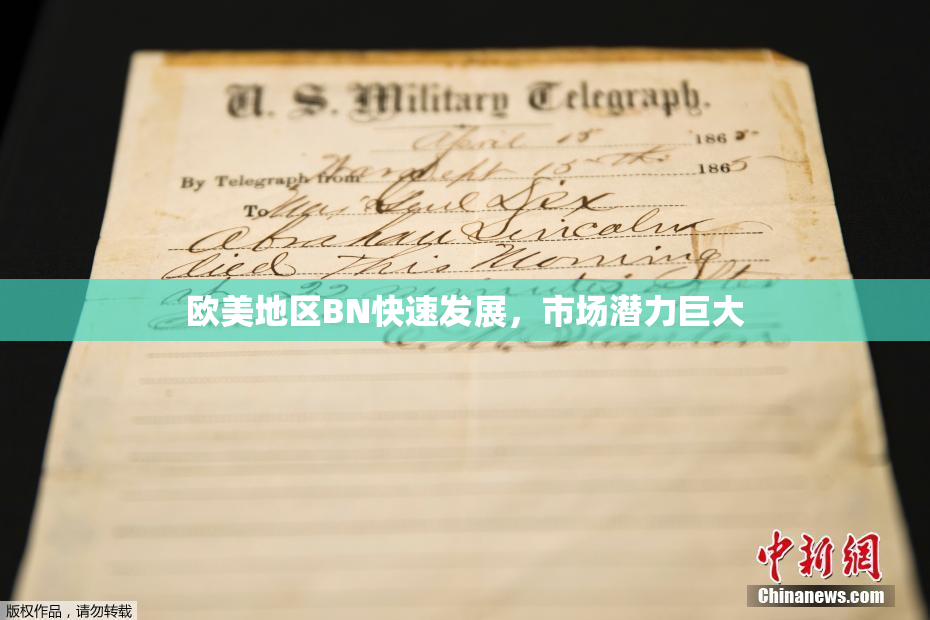 U. S. Military Telegraph.
April 15 1865
By Telegraph from War Dept 15th 1865
To Maj Genl Dix
Abraham Lincoln
died This Morning
at 22 minutes after
欧美地区BN快速发展，市场潜力巨大
E. M. Stanton
中新网
Chinanews.com
版权作品，请勿转载